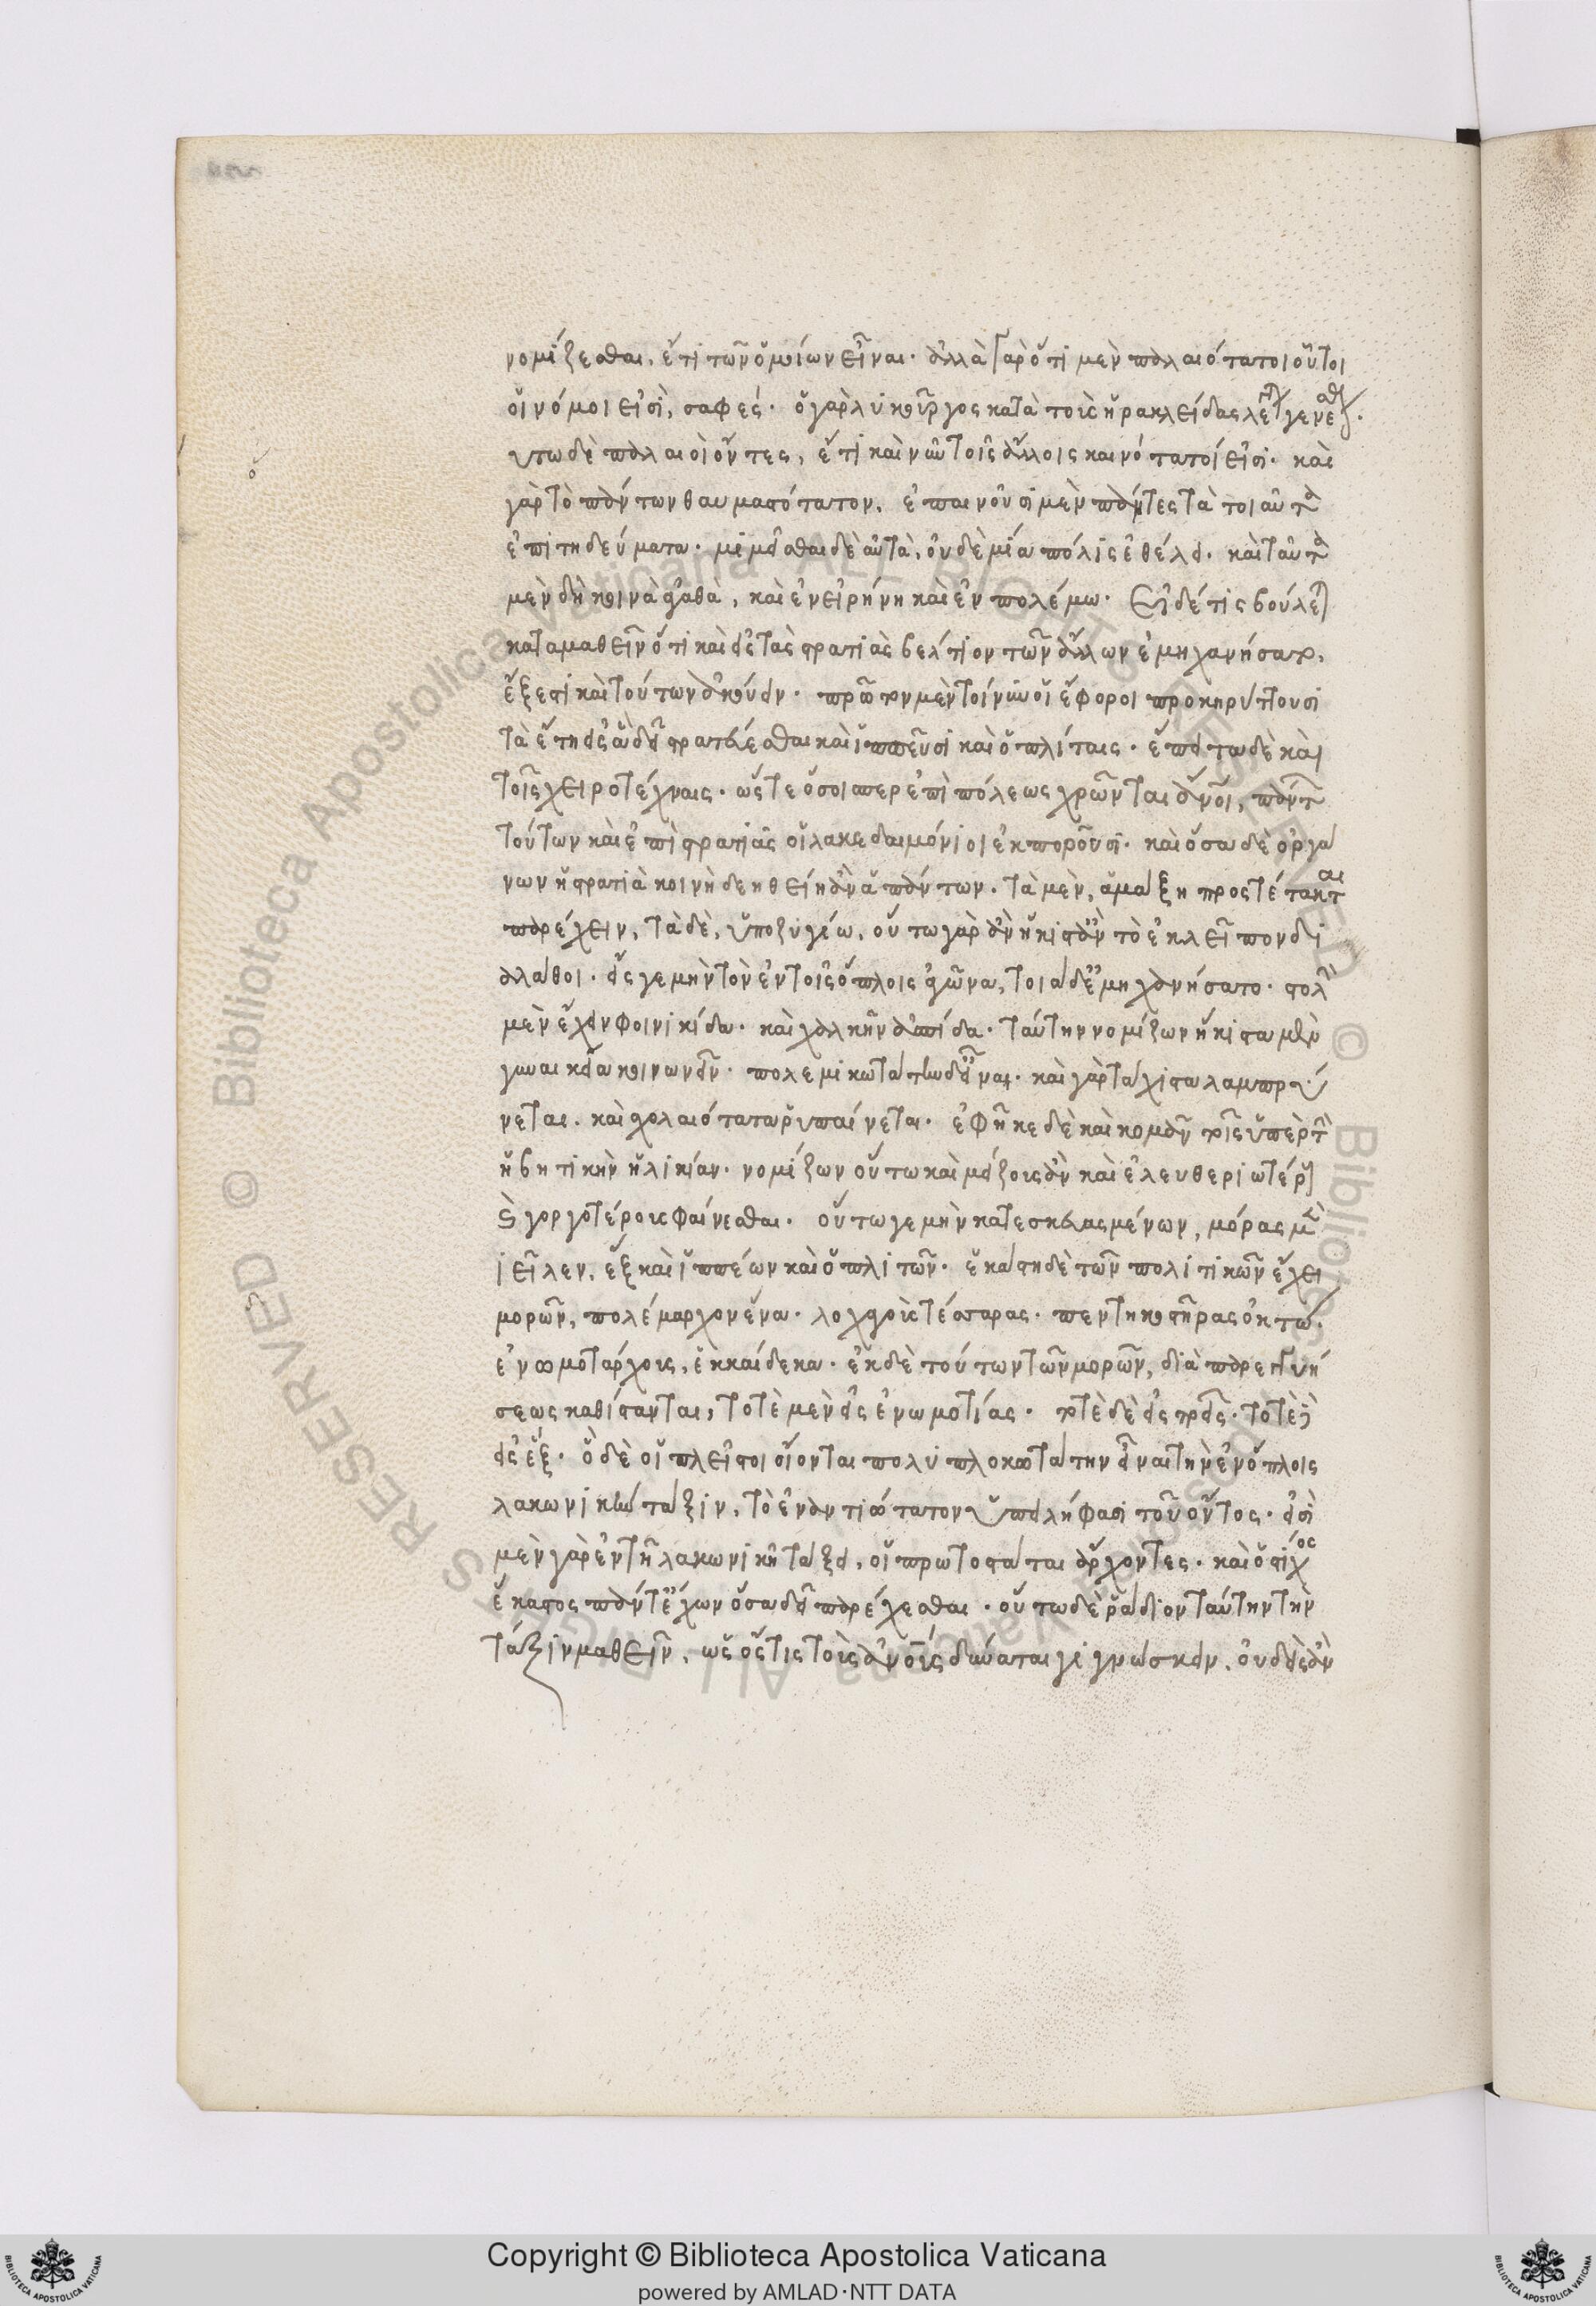 νομίζεσθαι, ἔτι τῶν ὁμοίων εἶναι. ἀλλὰ γὰρ ὅτι μὲν παλαιότατοι οὗτοι
οἱ νόμοι εἰσὶ, σαφές. ὁ γὰρ λυκοῦργος κατὰ τοὺς ἡρακλείδας λέγεται γενέσθαι.
οὕτω δὲ παλαιοὶ ὄντες, ἔτι καὶ νῦν τοῖς ἄλλοις καινότατοί εἰσι. καὶ
γὰρ τὸ πάντων θαυμαστότατον, ἐπαινοῦσι μὲν πάντες τὰ τοιαῦτα
ἐπιτηδεύματα. μιμεῖσθαι δὲ αὐτὰ, οὐδὲ μία πόλις ἐθέλει. καὶ ταῦτα
μὲν δὴ κοινὰ ἀγαθὰ, καὶ ἐν εἰρήνη καὶ ἐν πολέμω. Εἰ δέ τις βούλεται
καταμαθεῖν ὅτι καὶ εἰς τὰς στρατιὰς βέλτιον τῶν ἄλλων ἐμηχανήσατο,
ἔξεστι καὶ τούτων ἀκούειν. πρῶτον μὲν τοίνυν οἱ ἔφοροι προκηρύττουσι
τὰ ἔτη εἰς ἃ δεῖ στρατεύεσθαι καὶ ἱππεῦσι καὶ ὁπλίταις. ἔπειτα δὲ καὶ
τοῖς χειροτέχναις. ὥστε ὅσοιπερ ἐπὶ πόλεως χρῶνται ἄνοι, πάντων
τούτων καὶ ἐπὶ στρατιᾶς οἱ λακεδαιμόνιοι εὐποροῦσι. καὶ ὅσα δὲ ὀργά
νων ἡ στρατιὰ κοινῇ δεηθείη ἂν ἁπάντων. τὰ μὲν, ἁμάξη προστέτακται
παρέχειν, τὰ δὲ, ὑποζυγίω, οὕτω γὰρ ἂν ἥκιστ' ἂν τὸ ἐκλεῖπον δι
αλάθοι. εἴς γε μὴν τὸν ἐν τοῖς ὅπλοις ἀγῶνα, τοιάδ' ἐμηχανήσατο. στολὴν
μὲν ἔχειν φοινικίδα. καὶ χαλκῆν ἀσπίδα. ταύτην νομίζων ἥκιστα μὲν
γυναικεία κοινωνεῖν. πολεμικωτάτην δ' εἶναι. καὶ γὰρ τάχιστα λαμπρύ
νεται. καὶ σχολαιότατα ῥυπαίνεται. ἐφῆκε δὲ καὶ κομᾶν τοῖς ὑπὲρ τὴν
ἡβητικὴν ἡλικίαν. νομίζων οὕτω καὶ μείζους ἂν καὶ ἐλευθεριωτέρους
καὶ γοργοτέρους φαίνεσθαι. οὕτω γε μὴν κατεσκευασμένων, μόρας μὲν
διεῖλεν, ἓξ καὶ ἱππέων καὶ ὁπλιτῶν. ἑκάστη δὲ τῶν πολιτικῶν ἔχει
μορῶν, πολέμαρχον ἕνα. λοχαγοὺς τέσσαρας. πεντηκοστῆρας ὀκτώ.
ἐνωμοτάρχους, ἑκκαίδεκα. ἐκ δὲ τούτων τῶν μορῶν, διὰ παρεγγυή
σεως καθίστανται, τοτὲ μὲν εἰς ἐνωμοτίας. τοτὲ δὲ εἰς τρεῖς. τοτὲ δὲ
εἰς ἕξ. ὃ δὲ οἱ πλεῖστοι οἴονται πολυπλοκωτάτην εἶναι τὴν ἐν ὅπλοις
λακωνικὴν τάξιν, τὸ ἐναντιώτατον ὑπειλήφασι τοῦ ὄντος. εἰσὶ
μὲν γὰρ ἐν τῆ λακωνικῆ τάξει, οἱ πρωτοστάται ἄρχοντες. καὶ ὁ στίχος
ἕκαστος πάντ' ἔχων ὅσα δεῖ παρέχεσθαι. οὕτω δὲ ῥάδιον ταύτην τὴν
τάξιν μαθεῖν, ὡς ὅστις τοὺς ἀνοὺς δύναται γιγνώσκειν, οὐδεὶς ἂν